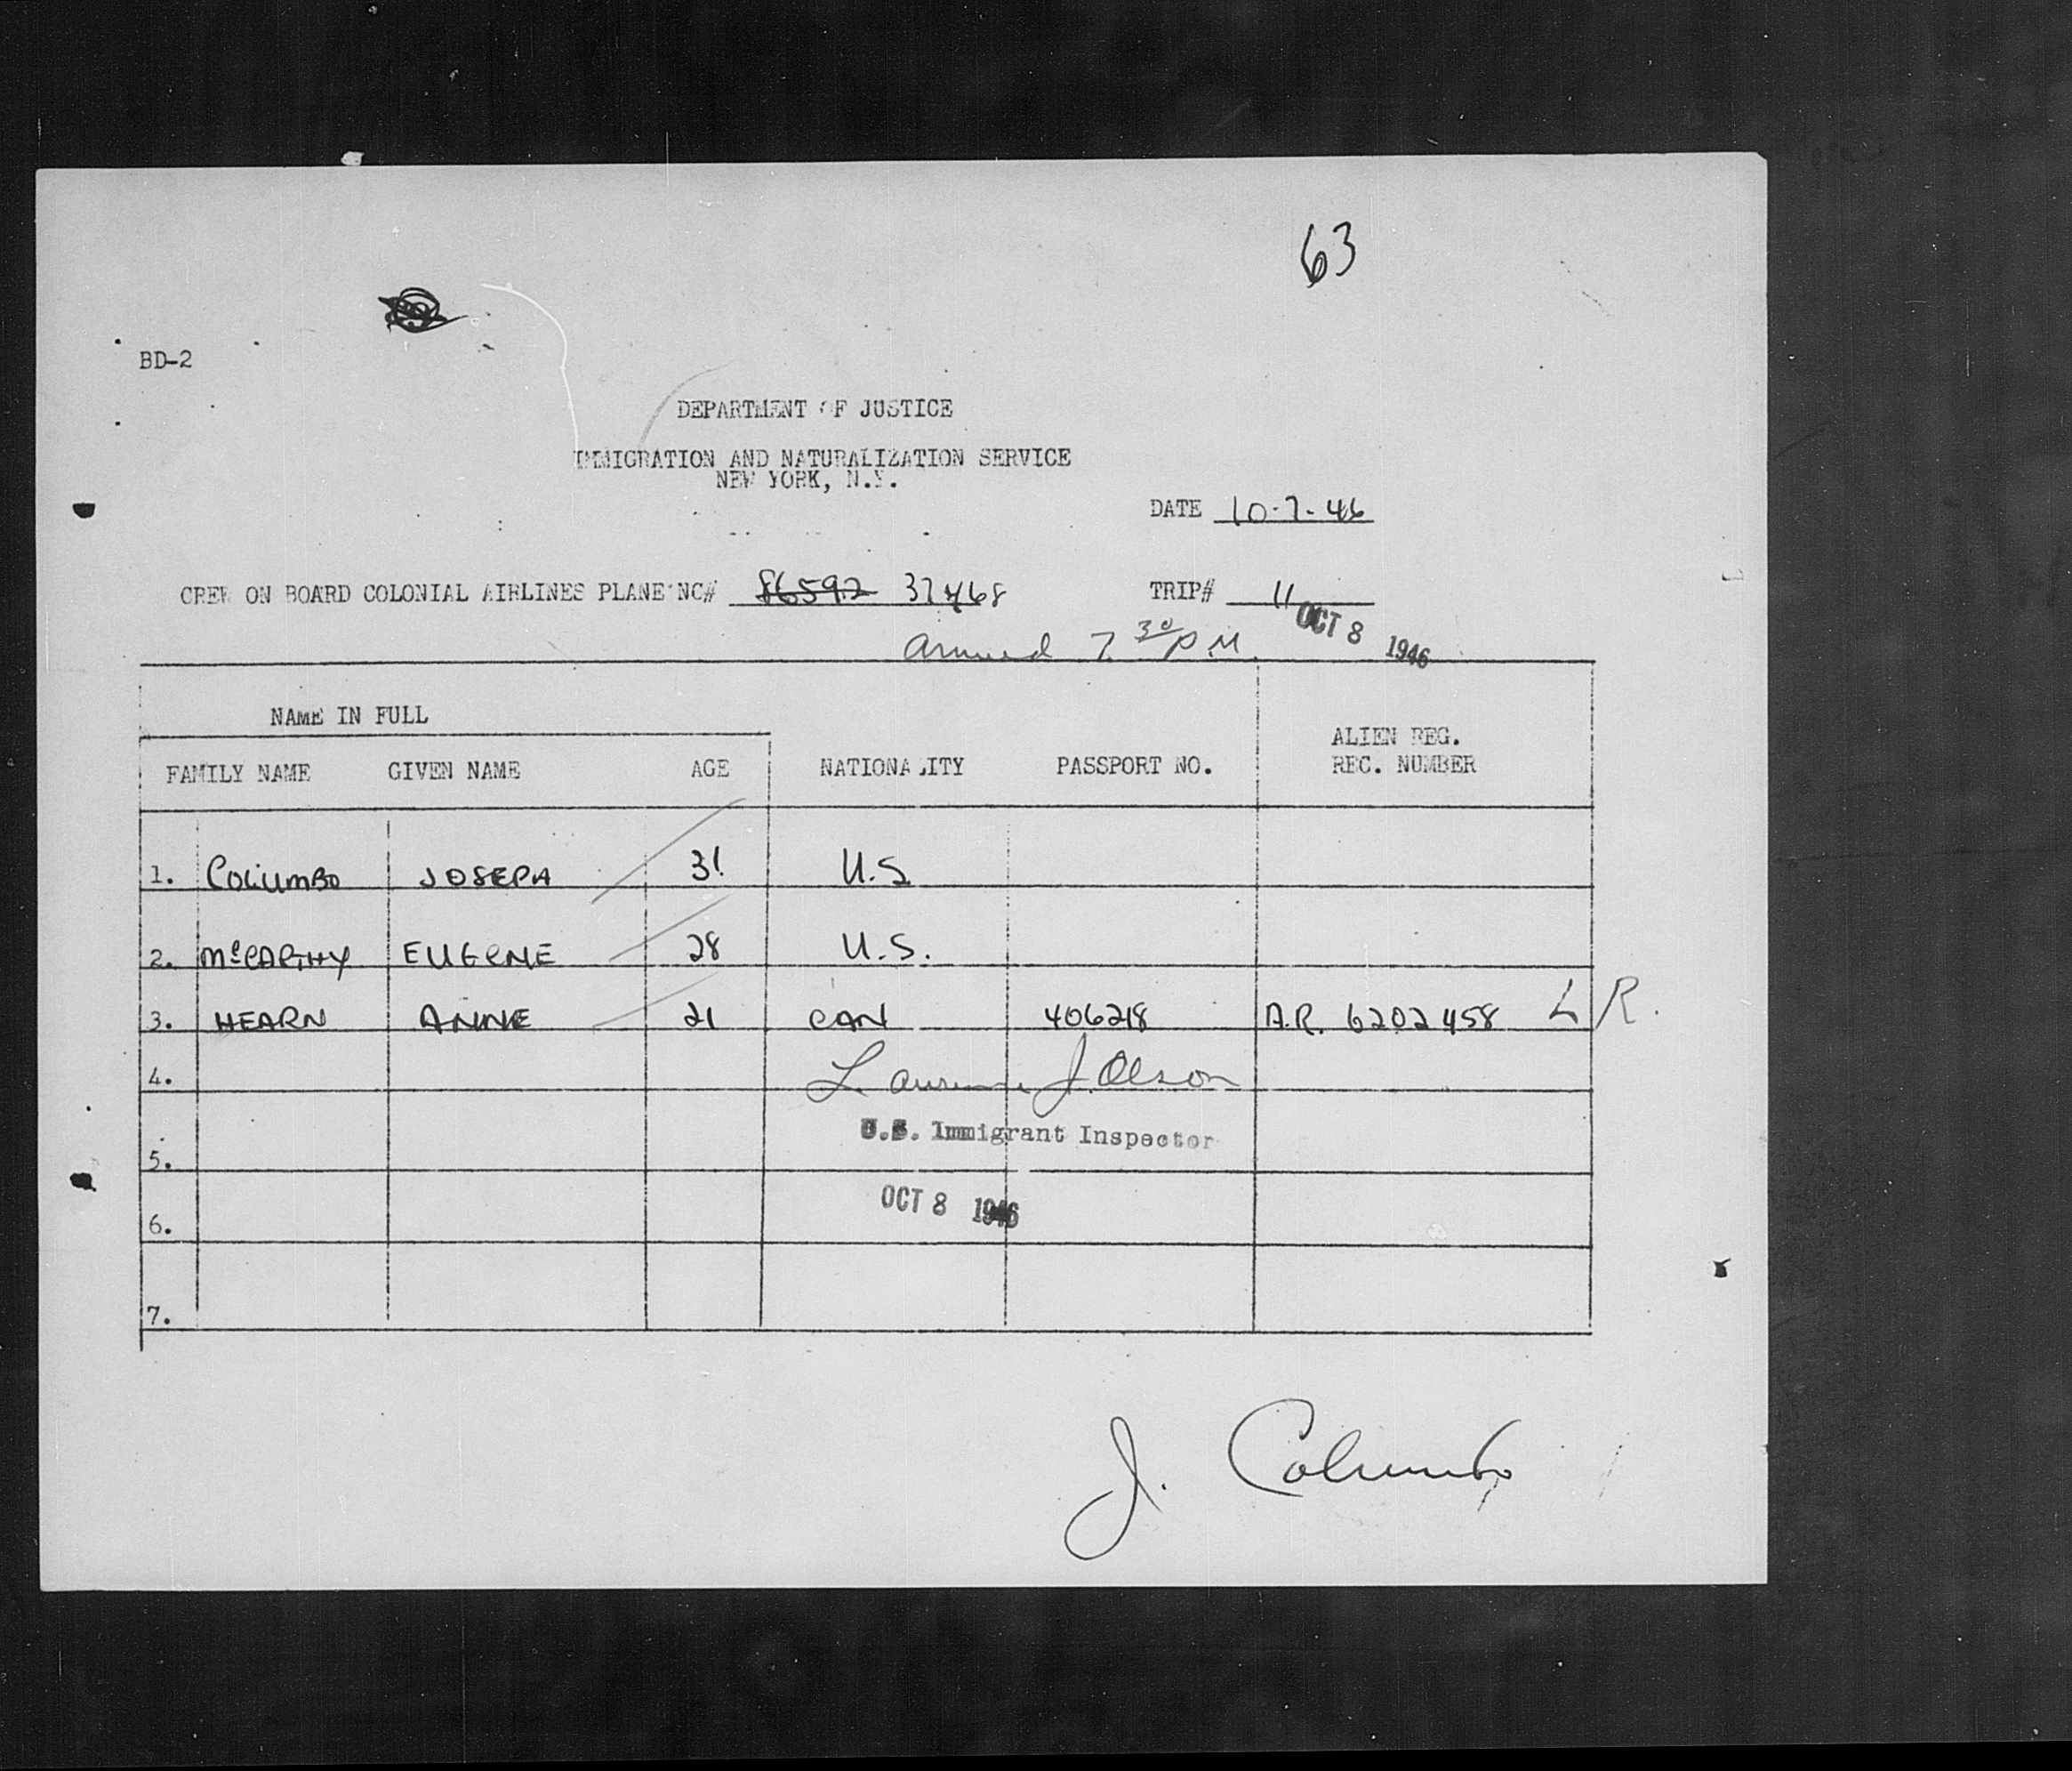 63
BD-2
DEPARTMENT OF JUSTICE
IMMIGRATION AND NATURALIZATION SERVICE
NEW YORK, N.Y.
DATE 10-7-46
CREW ON BOARD COLONIAL AIRLINES PLANE NC# 86592 37468 TRIP# 11
OCT 8 1946
Arrived 7 30 P.M.
NAME IN FULL
FAMILY NAME GIVEN NAME AGE NATIONALITY PASSPORT NO. ALIEN REG. REC. NUMBER
1. COLUMBO JOSEPH 31 U.S
2. McCARTHY EUGENE 28 U.S.
3. HEARN ANNE 21 CAN 406218 A.R. 6202458 L R.
4. Laurence J. Olson
U.S. Immigrant Inspector
5.
OCT 8 1946
6.
7.
J. Columbo